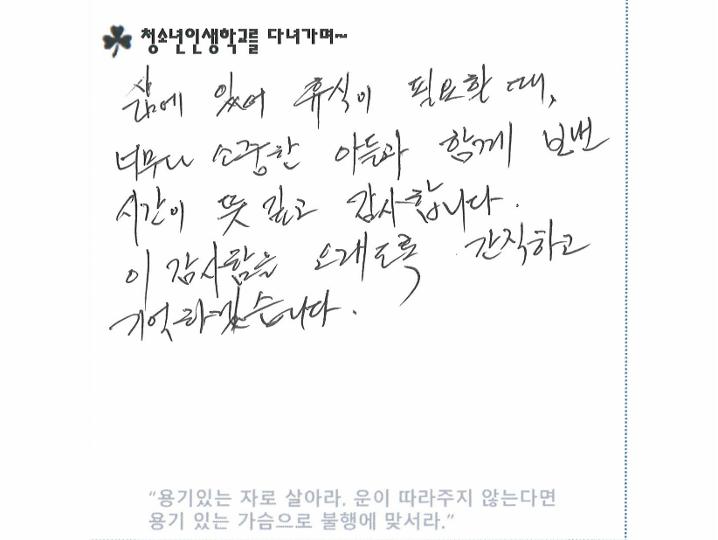 청소년인생학교를 다녀가며~
삶에 있어 휴식이 필요할 때,
너무나 소중한 아들과 함께 보낸
시간이 뜻 깊고 감사합니다.
이 감사함을 오래도록 간직하고
기억하겠습니다.
"용기있는 자로 살아라. 운이 따라주지 않는다면
용기 있는 가슴으로 불행에 맞서라."